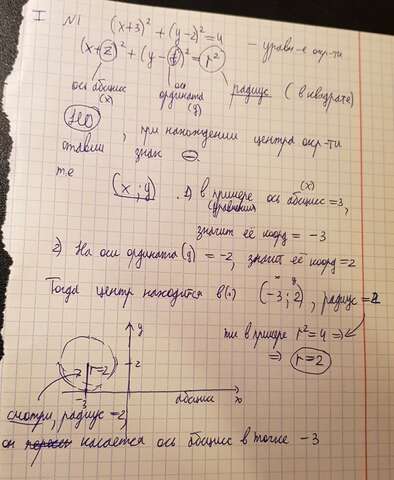 I №1 (x+3)² + (y-2)² = 4 - уравн-е окр-ти
(x+2)² + (y-)² = r²
ось абсцисс (x) ось ордината (y) радиус (в квадрате)
НО, при нахождении центра окр-ти
ставим знак ⊖.
те (x ; y). 1) в примере (уравнения) ось абсцисс (x) = 3,
значит её коорд = -3
2) На оси ордината (y) = -2, значит её коорд = 2
Тогда центр находится в (·) (-3; 2), радиус = 2
x y
тк в примере r² = 4 =>
=> r = 2
y
2
r=2
-3 абсцисс x
смотри, радиус = 2,
он касается ось абсцисс в точке -3